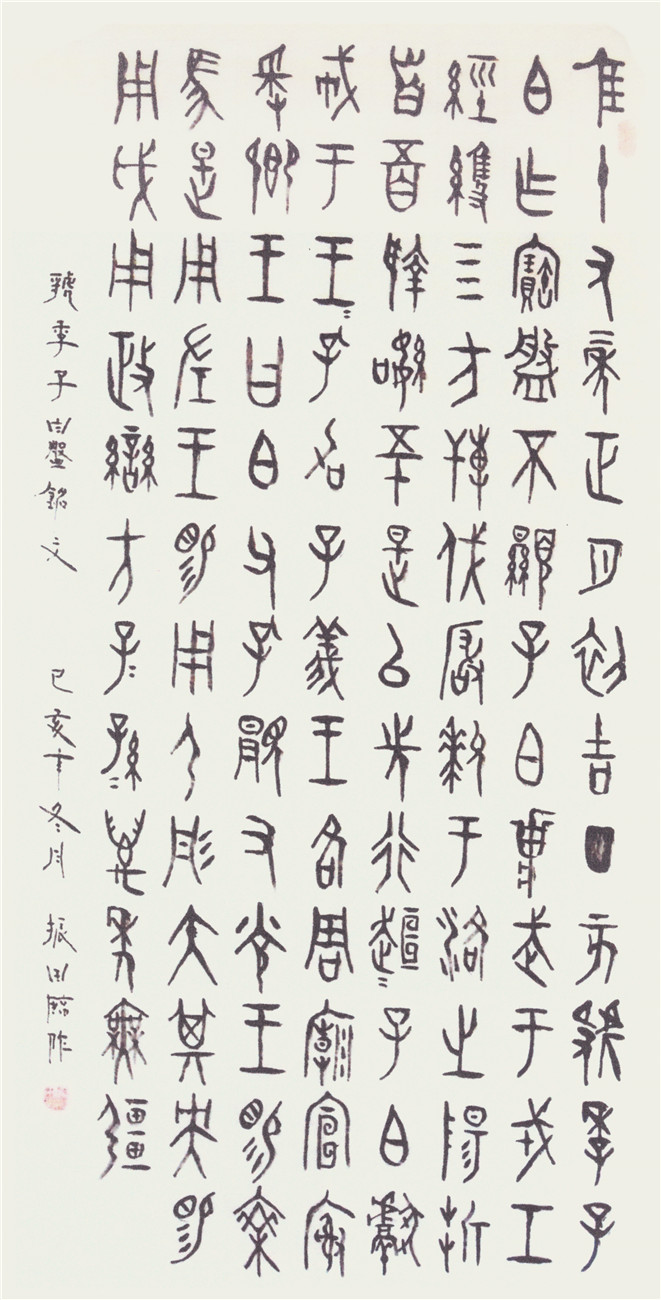 隹十又二年正月初吉丁亥虢季子
白乍寶盤不顯子白𤕌武于戎工
經維四方搏伐玁狁于洛之陽折
首五百執訊五十是以先行趄=子白獻
聝于王=孔加子義王各周廟宣榭
爰卿王曰白父孔顯又光王睗乘
馬是用左王睗用弓彤矢其央睗
用戉用政蠻方子=孫=萬年無疆
虢季子白盤銘文 己亥年冬月 振臨作